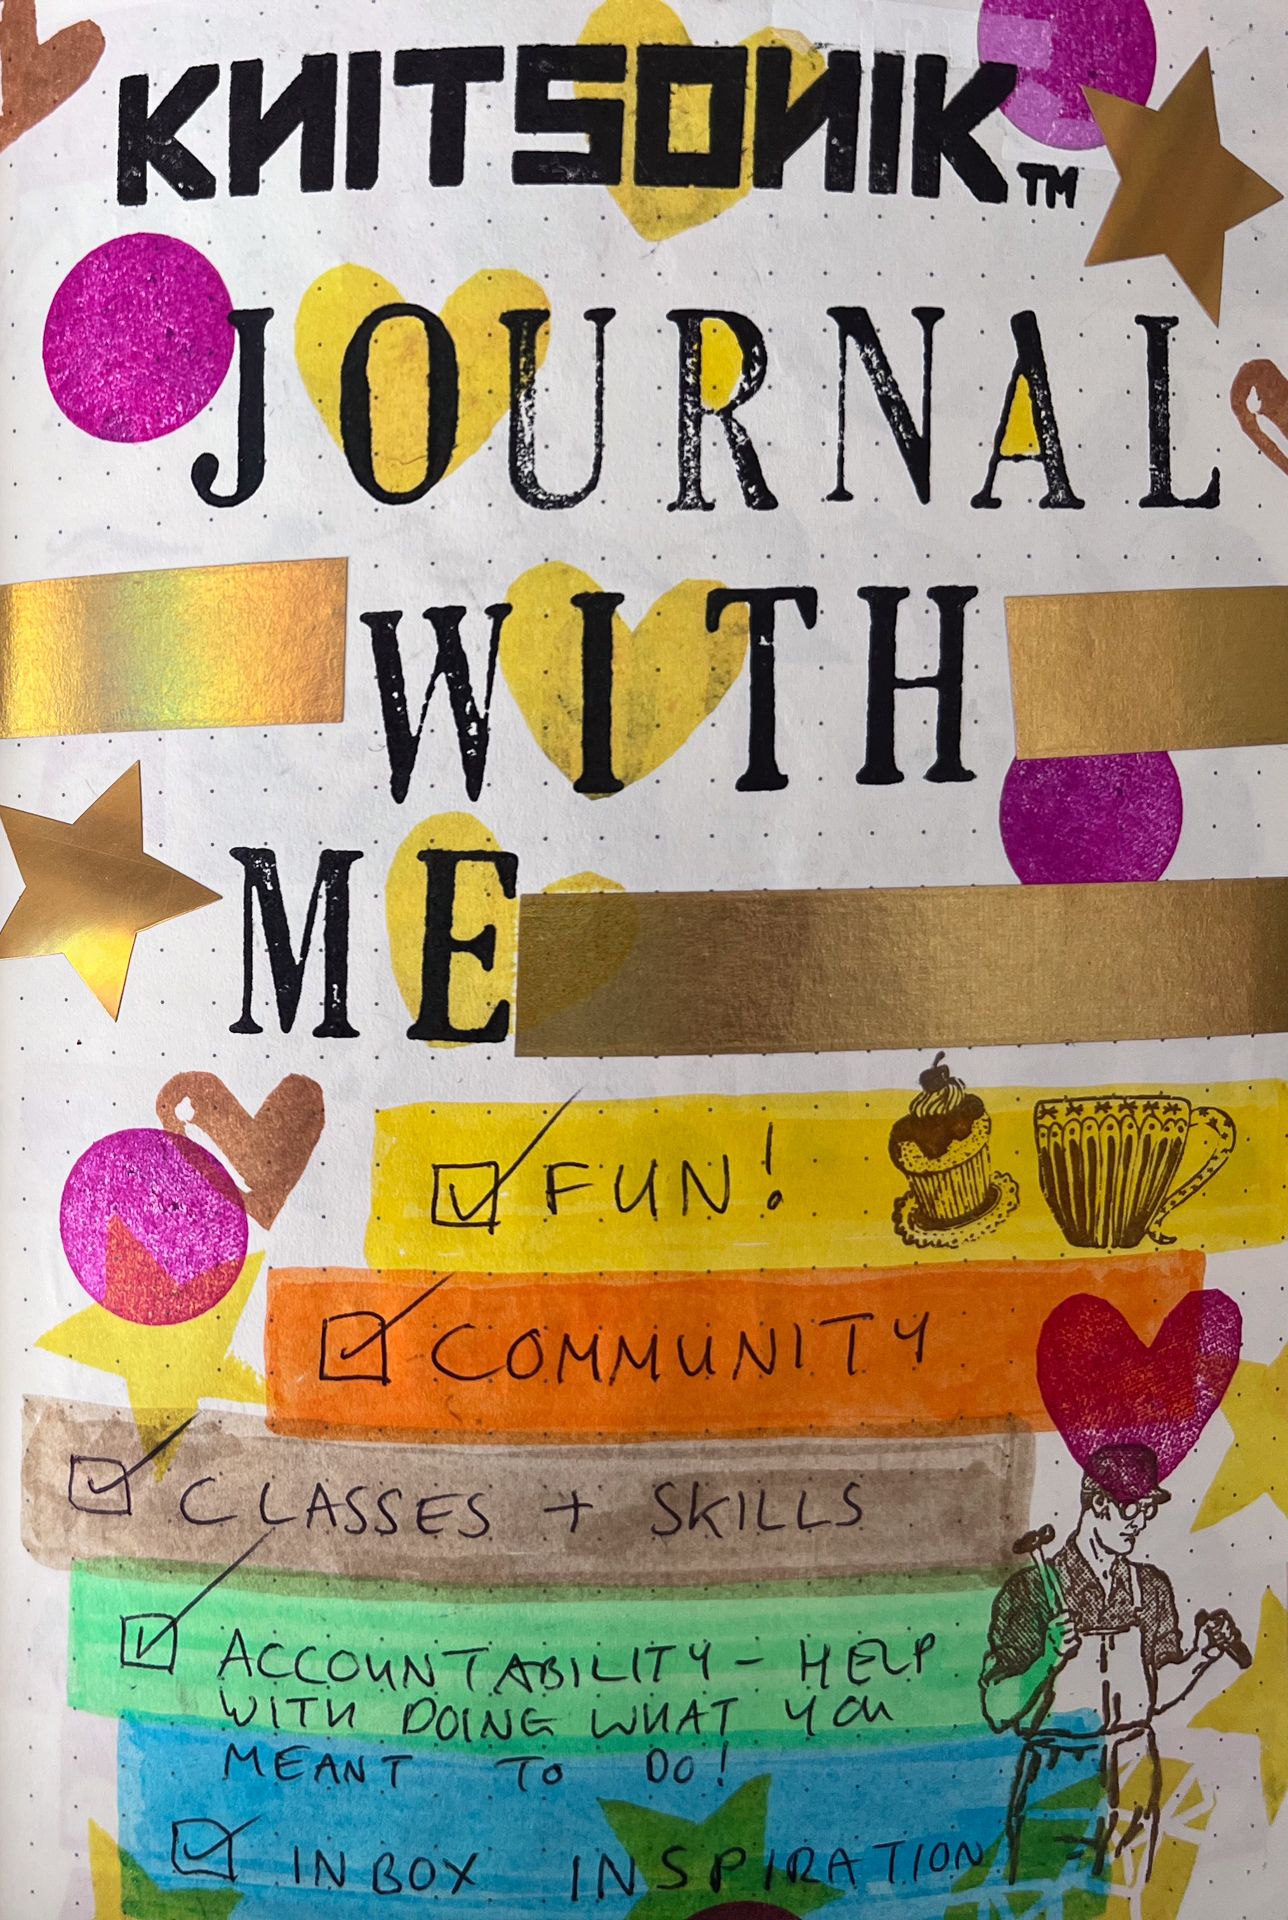 KNITSONIK™
JOURNAL
WITH
ME
FUN!
COMMUNITY
CLASSES + SKILLS
ACCOUNTABILITY - HELP
WITH DOING WHAT YOU
MEANT TO DO!
INBOX INSPIRATION